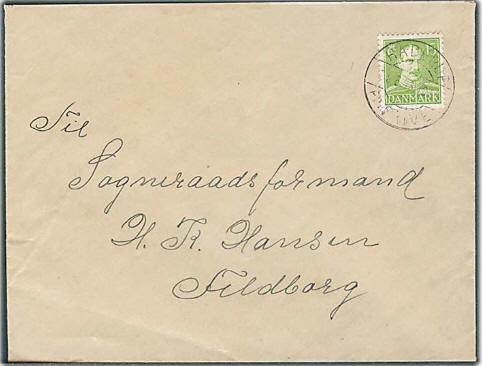 15
DANMARK
Til
Sogneraadsformand
H. K. Hansen
Feldborg